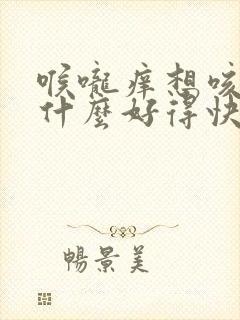 喉嚨痒想咳
什麼好得快
暢景美